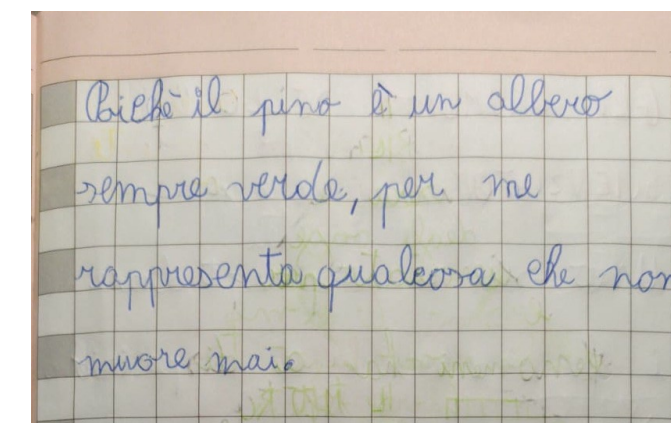 Poichè il pino è un albero
sempre verde, per me
rappresenta qualcosa che non
muore mai.